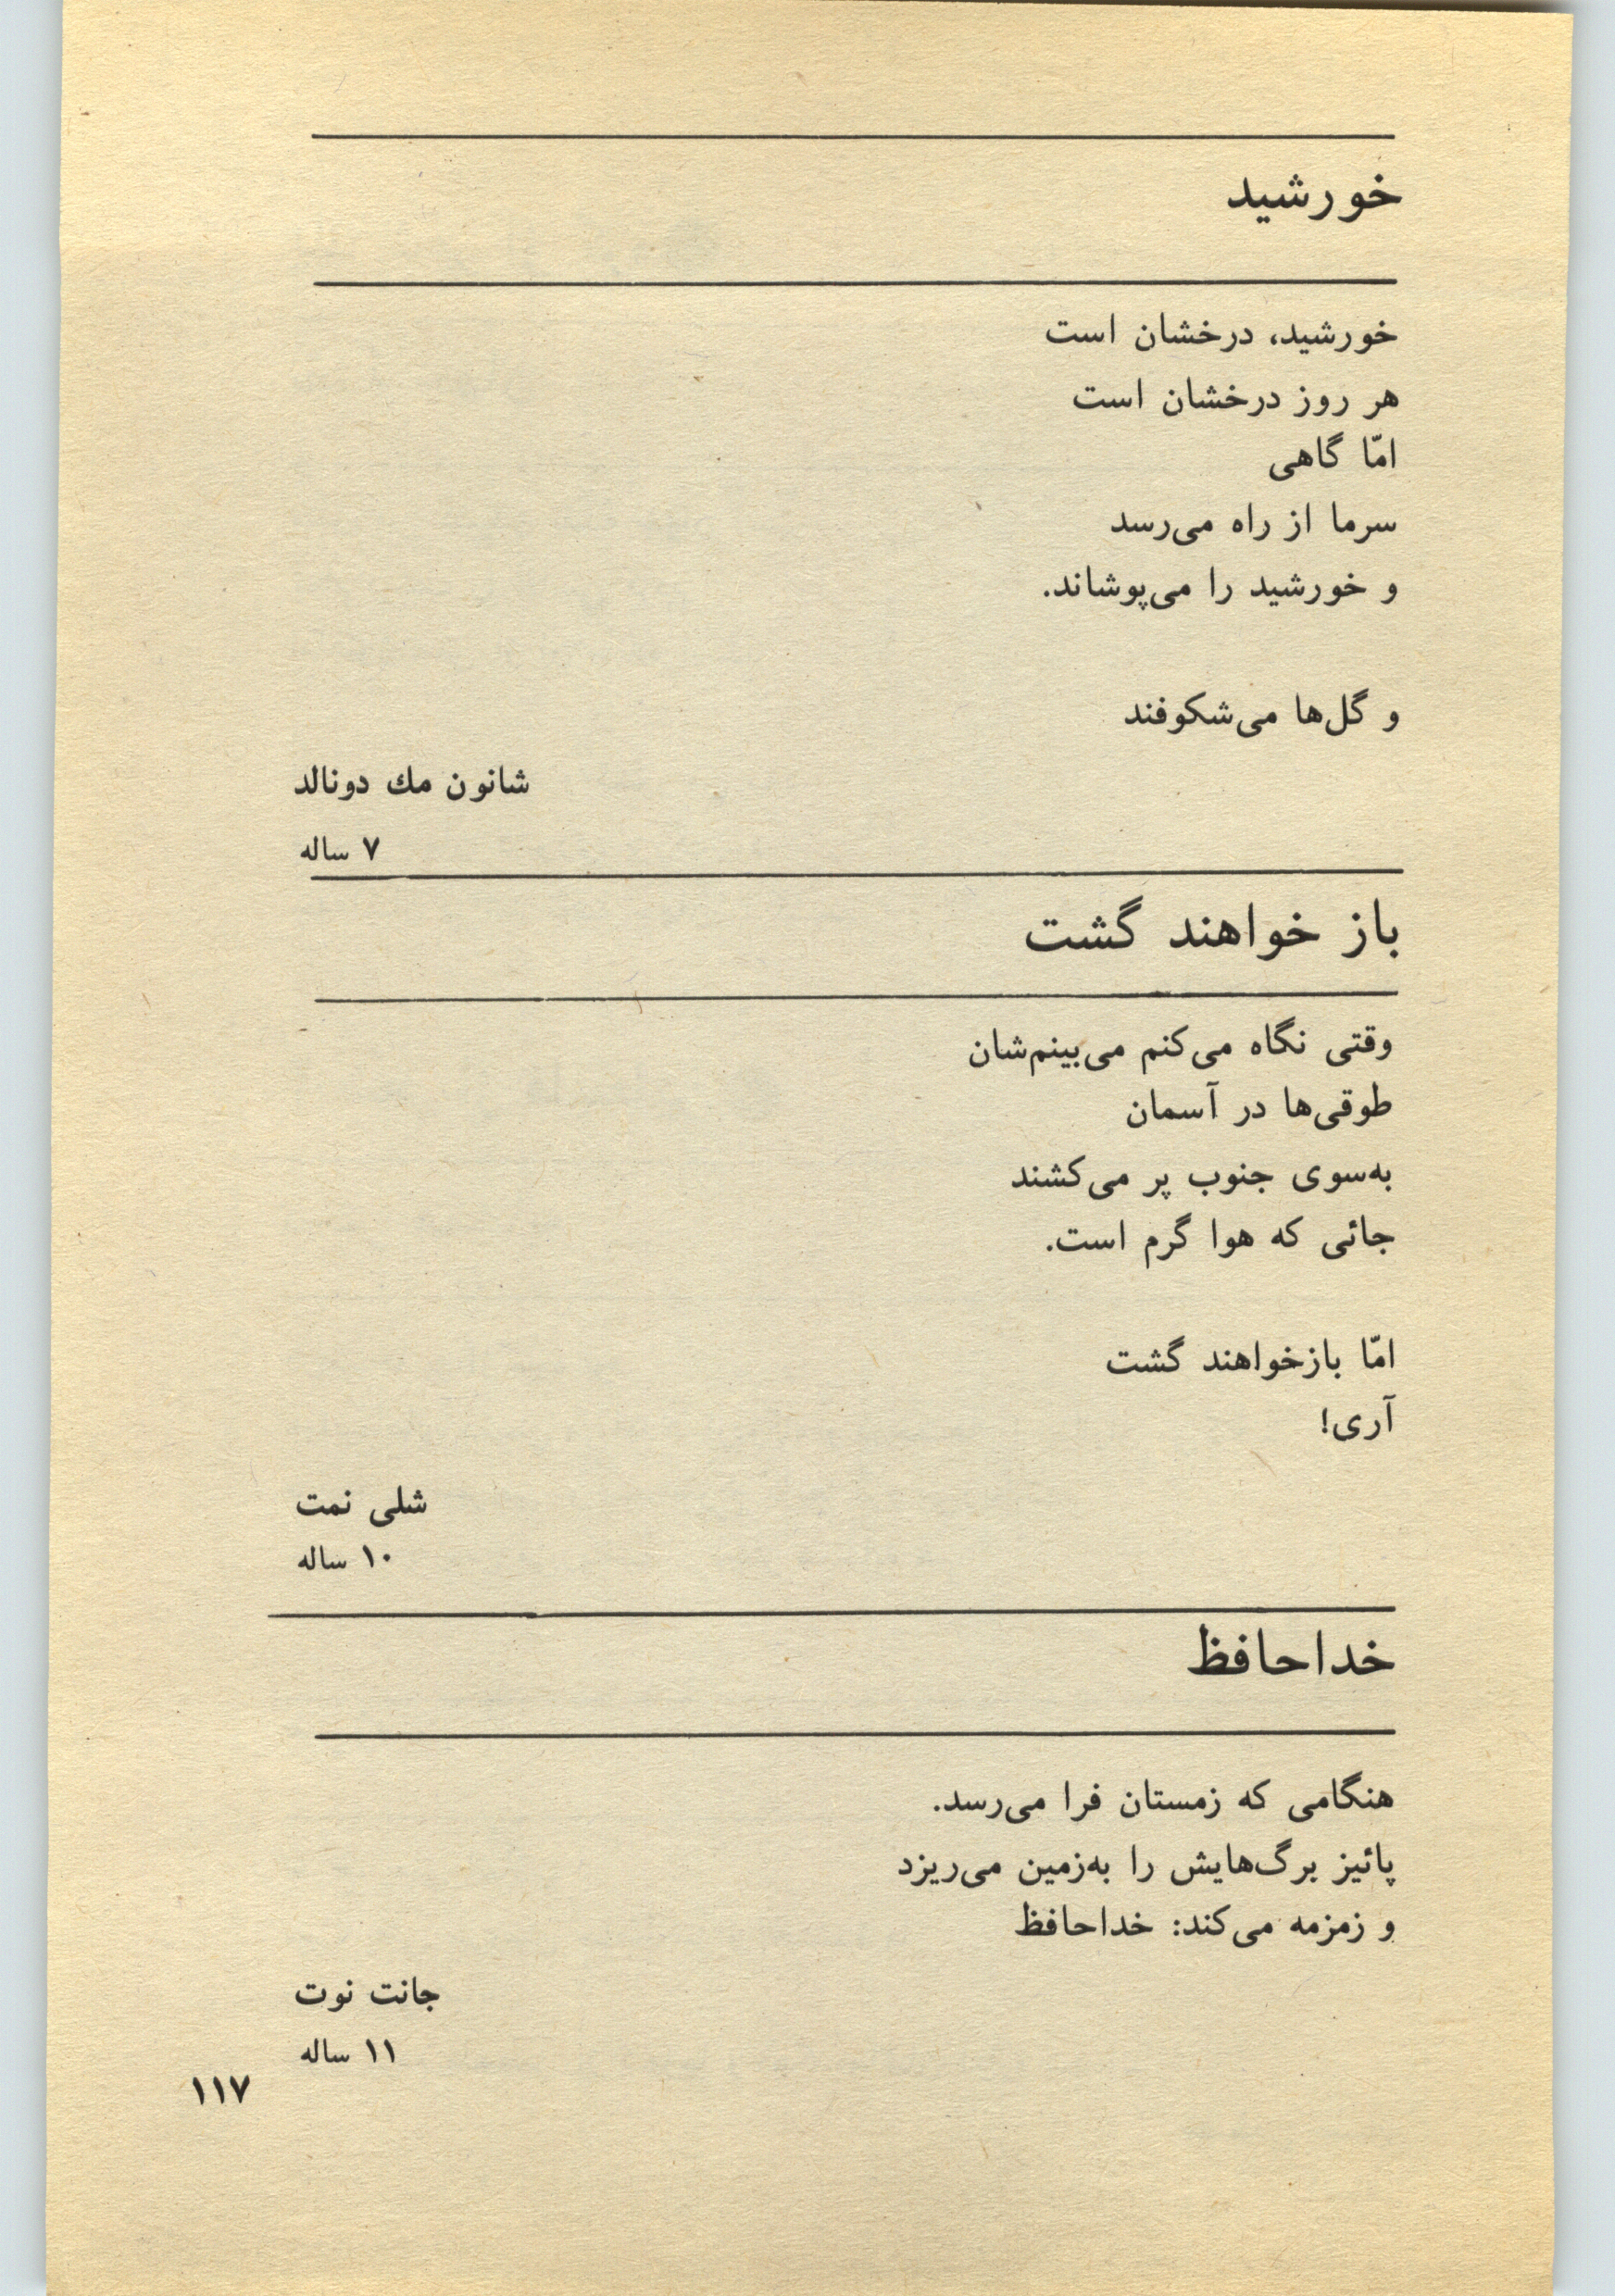 خورشید
خورشید، درخشان است
هر روز درخشان است
امّا گاهی
سرما از راه می‌رسد
و خورشید را می‌پوشاند.
و گل‌ها می‌شکوفند
شانون مك دونالد
۷ ساله
باز خواهند گشت
وقتی نگاه می‌کنم می‌بینم‌شان
طوقی‌ها در آسمان
به‌سوی جنوب پر می‌کشند
جائی که هوا گرم است.
امّا بازخواهند گشت
آری!
شلی نمت
۱۰ ساله
خداحافظ
هنگامی که زمستان فرا می‌رسد.
پائیز برگ‌هایش را به‌زمین می‌ریزد
و زمزمه می‌کند: خداحافظ
جانت نوت
۱۱ ساله
۱۱۷